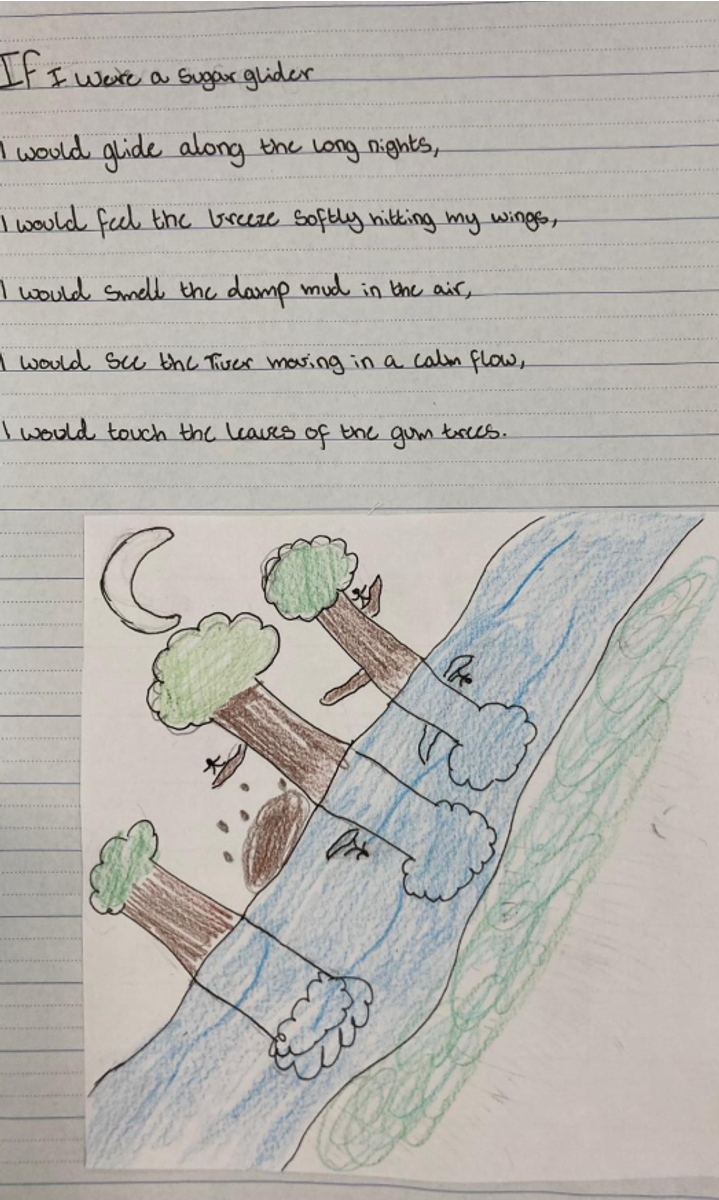 If I were a sugar glider
I would glide along the long nights,
I would feel the breeze softly hitting my wings,
I would smell the damp mud in the air,
I would see the river moving in a calm flow,
I would touch the leaves of the gum trees.